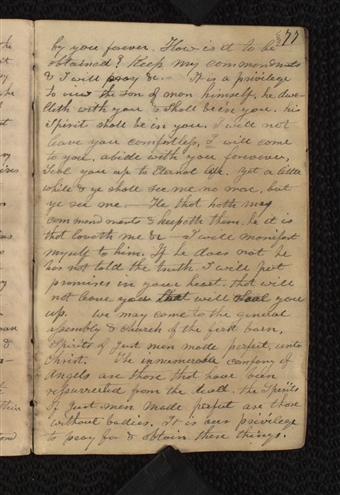 77
by you forever. How is it to be
obtained? Keep my commandments
& I will pray &c. It is a privilege
to view the son of man himself, he dwe-
lleth with you & shall be in you. his
Spirit shall be in you. I will not
leave you comfortless, I will come
to you, abide with you forever,
Seal you up to Eternal life. yet a little
while & ye shall see me no more, but
ye see me — He that hath my
commandments & keepeth them, he it is
that loveth me &c — I will manifest
myself to him. If he does not he
has not told the truth. I will put
promises in your heart, that will
not leave you that will seal you
up. We may come to the general
assembly & church of the first born,
Spirits of Just men made perfect, unto
Christ. The innumerable company of
Angels are those that have been
resurrected from the dead. the Spirits
of Just men made perfect are those
without bodies. it is our privilege
to pray for & obtain these things.